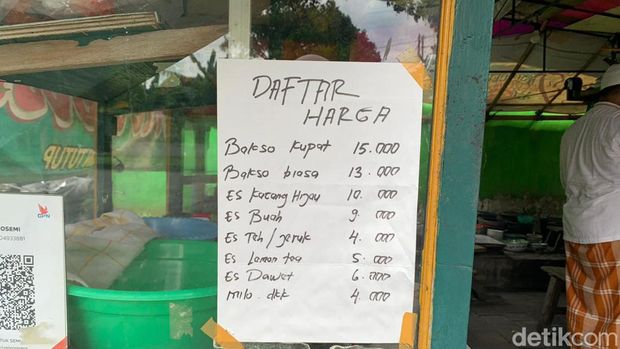 DAFTAR
HARGA
Bakso Kupat 15.000
Bakso biasa 13.000
ES Kacang Hijau 10.000
ES Buah 9.000
ES Teh/jeruk 4.000
ES Lemon tea 5.000
ES Dawet 6.000
Milo. dkk 4.000
GPN
OSEMI
04933881
TUTUP
detikcom